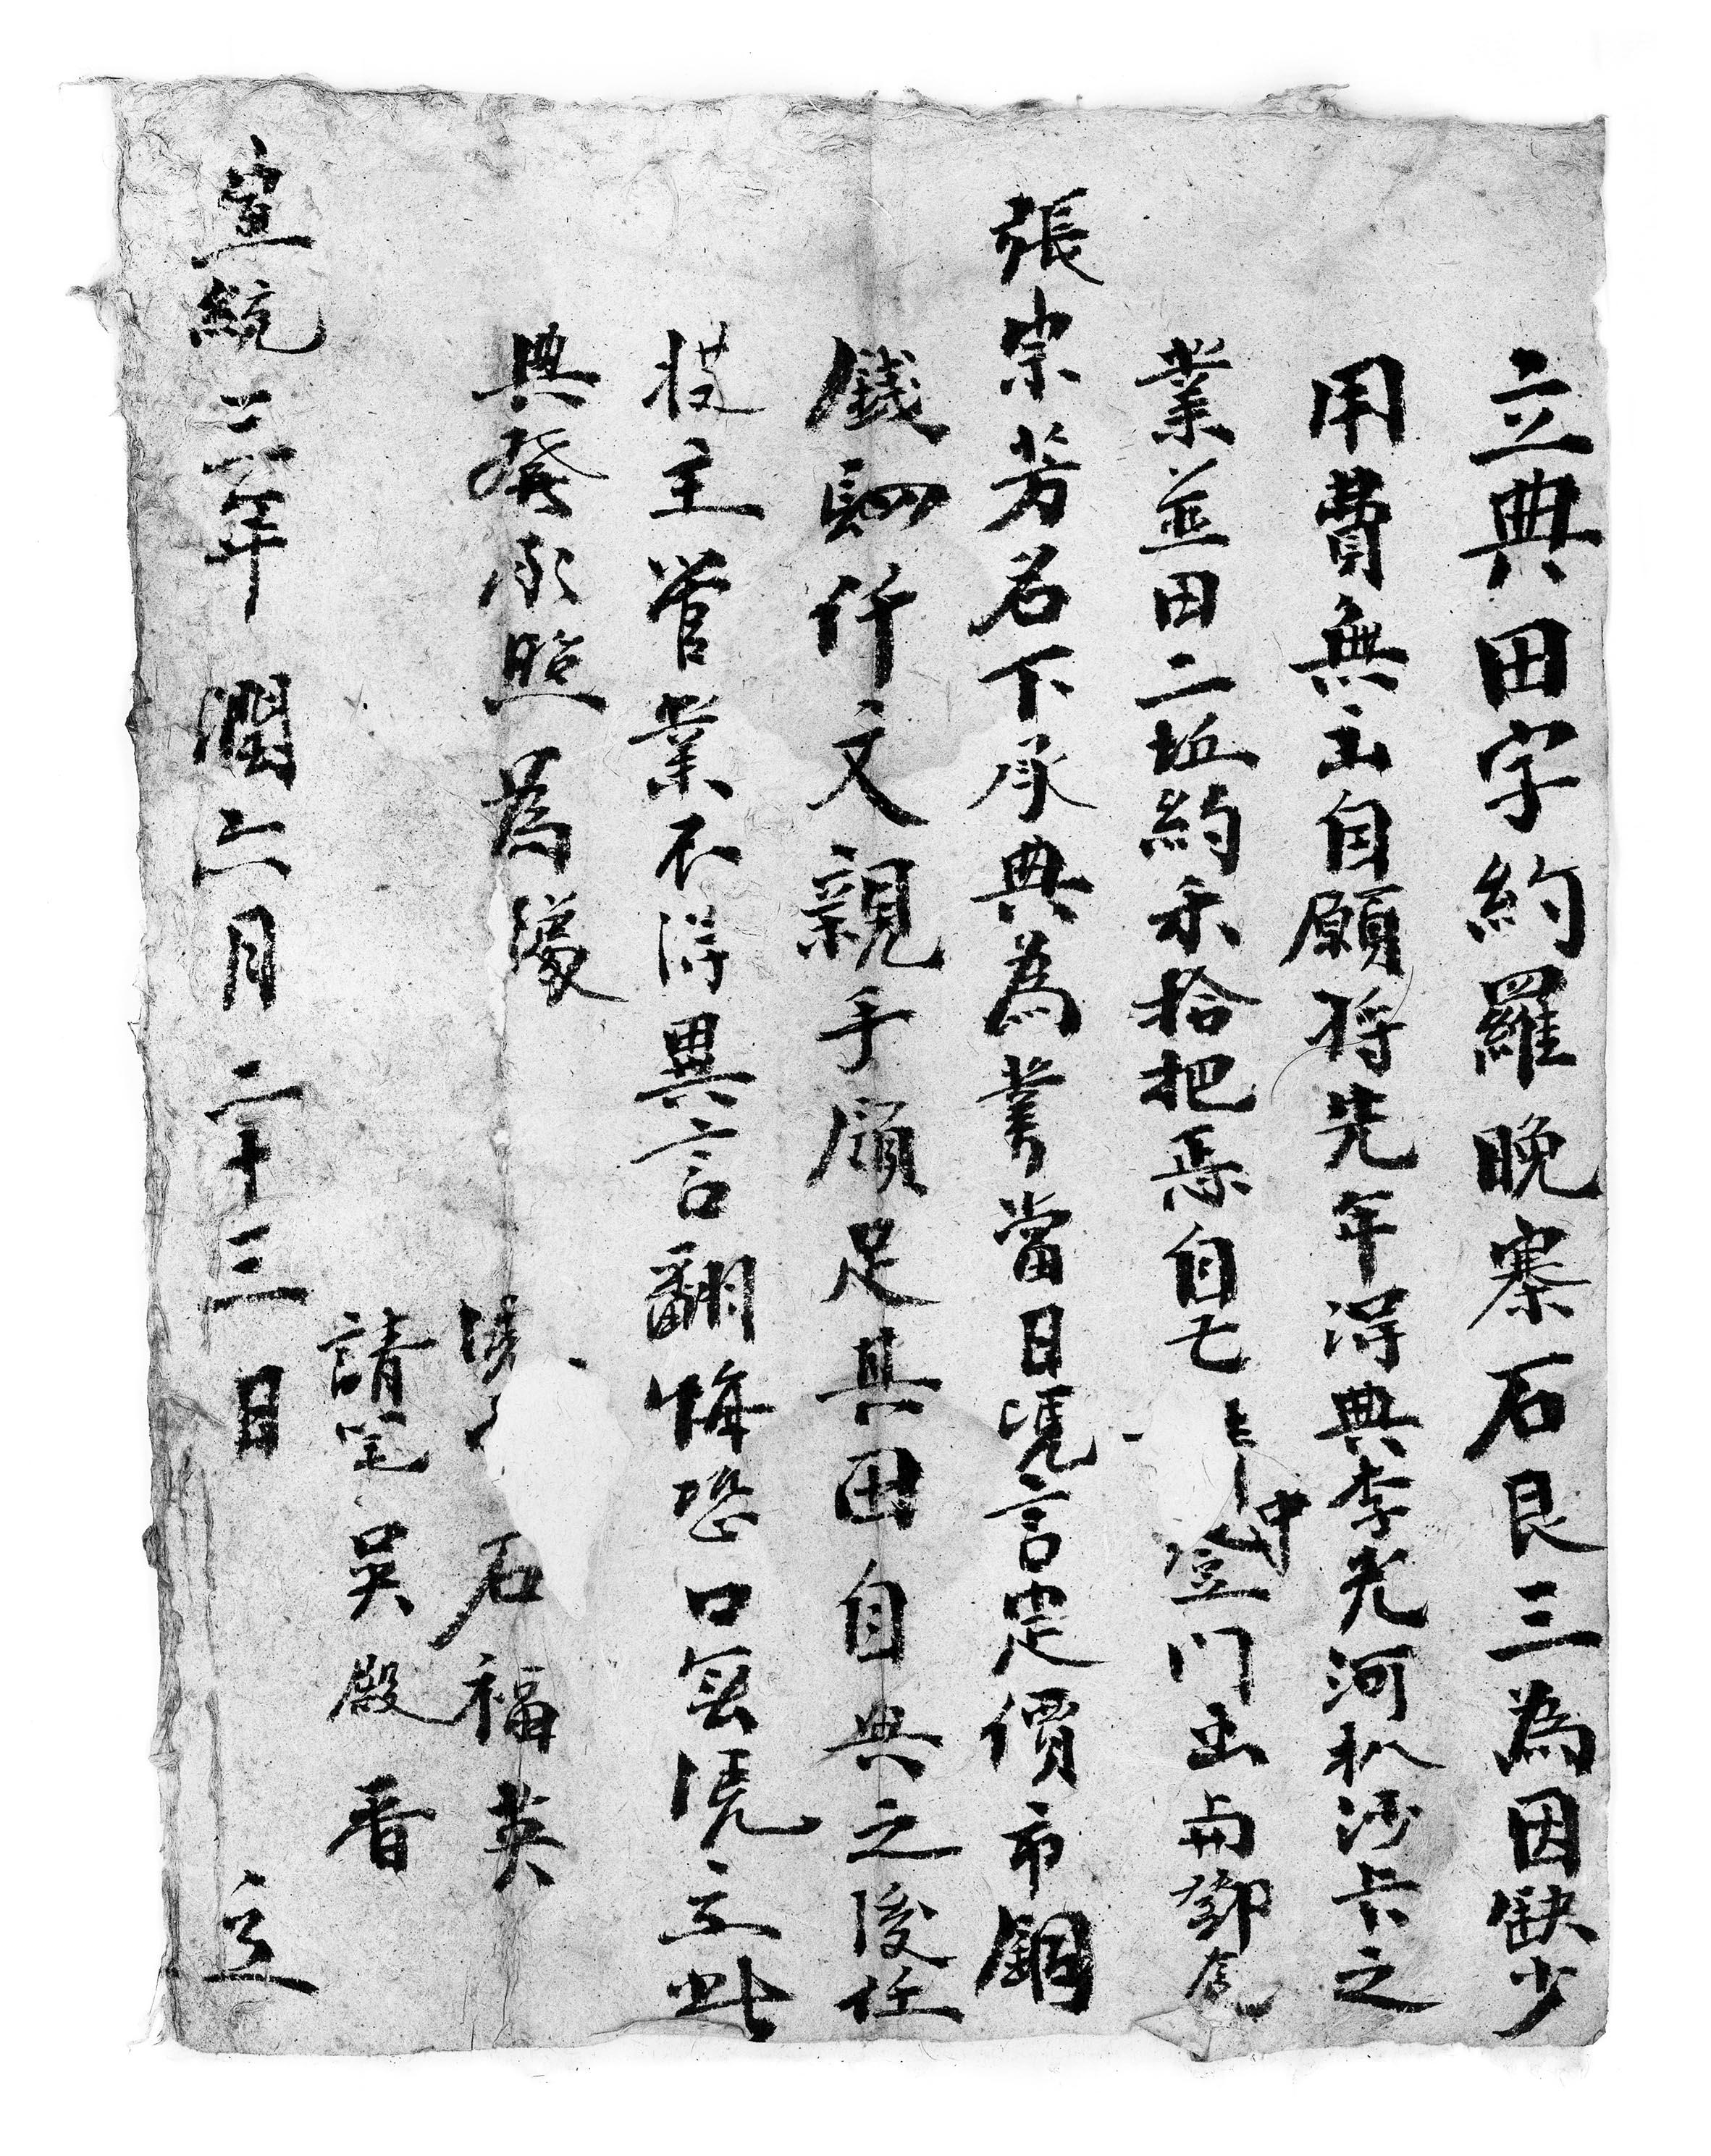 立典田字約羅晚寨石艮三為因缺少
用費無出自願将先年得典李光河扒沙卡之
業並田二坵約禾拾把係自己 中登門出与鄧堯
張宗芳名下承典為業當日凴言定價市銅
錢駟仟文親手領足其田自典之後任
從主管業不得異言翻悔恐口無凴立此
典發承照為據
凴 石福英
請笔吳殿香
宣統三年潤六月二十三日 立